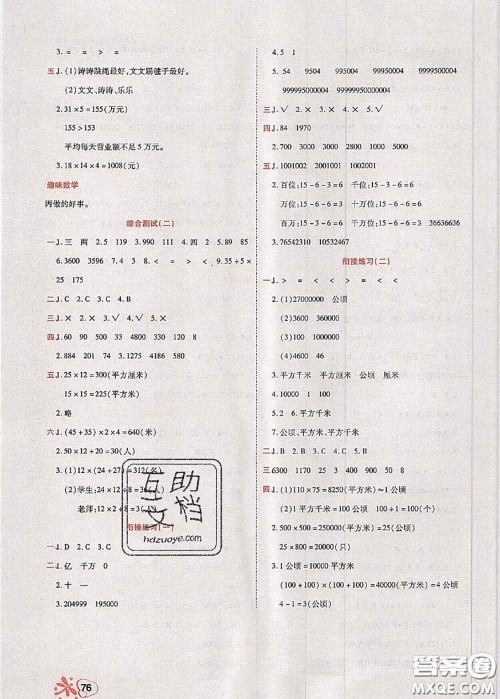 3. = = > =
五、1. (1)涛涛跳绳最好,文文踢毽子最好。
(2)文文、涛涛、乐乐
2. 31×5=155(万元)
155>153
平均每天营业额不足5万元。
3. 18×14×4=1008(元)
趣味数学
两傲的好事。
综合测试(二)
一、1. 三 两 2. 5 119 3. 990 111 4. 四 2 5. 89 85
6. 3600 3596 7. > < = < 8. > < 9. 35÷5×
25 175
二、1. C 2. C 3. C 4. B
三、1. × 2. × 3. √ 4. × 5. √
四、1. 60 90 500 33 480 4 600 15 9 830
2. 884 201 74 3. 1275 9 4 48
五、1. 25×12=300(平方厘米)
15×15=225(平方厘米)
2. 略
六、1. (45+35)×2×4=640(米)
2. 50×12÷20=30(人)
3. (1)12×(24+2)=312(名)
(2)学生:24×12÷8=36(
老师:12×2÷8=3(
衔接练习(一)
一、1. D 2. C 3. D
二、1. 亿 千万 0
2. 十 一
3. 204999 195000
4. 5 1
5. 54 9504 995004 99950004 9999500004
999995000004 99999950000004
三、1. √ 2. × 3. × 4. × 5. √
四、1. 84 1970
2. 700 3000 2000 32000 7000 4000
五、1. 1001002 10010002 2001001
2. 百位:15-6-3=6 千位:15-3-6=6
万位:15-3-6=6 十万位:15-6-3=6
百万:15-6-3=6 千万:15-3-6=6 36636636
3. 76542310 10532467
衔接练习(二)
一、1. > = < = < >
2. (1)27000000 公顷
(2)3600 360000
(3)10000 15000
(4)4600 46
3. 平方千米 平方米 公顷 厘米
4. 10000 1 100
5. 2 6. 平方千米
6. 公顷、平方千米、平方千米
二、1. C 2. D 3. B
三、6300 1170 25 8 3000 50
四、1. (1)110×75=8250(平方米)≈1公顷
(2)100×100=10000(平方米)=1公顷
2. 500×500=250000(平方米)=25公顷
25×800=20000(只)
3. 1公顷=10000平方米
(100+100)×(100+100)=40000(平方米)=4公顷
4-1=3(公顷)
互助文档
hdzuoye.com
76
答案圈
MXQE.COM